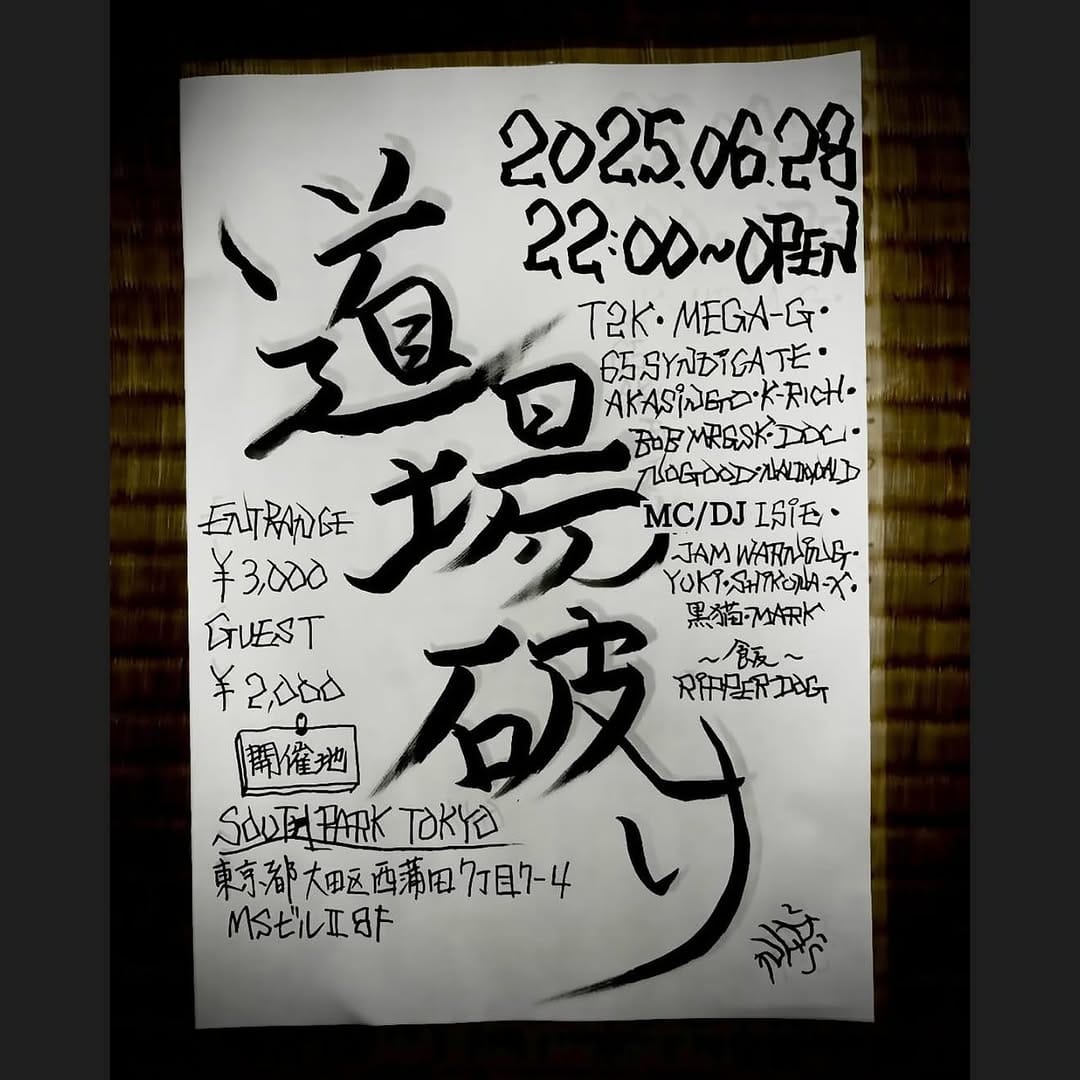 2025.06.28
22:00~OPEN
道場破り
T2K・MEGA-G・
65SYNDICATE・
AKASINGO・K-RICH・
BOB MRGSK・DDC・
NOGOOD・
MC/DJ ISIE・
JAM WARNING・
YUKI・SHIKONA-X・
黒猫・MARK
~飯~
RIPPER DOG
ENTRANCE
¥3,000
GUEST
¥2,000
開催地
SOUTH PARK TOKYO
東京都大田区西蒲田7丁目7-4
MSビルII 8F